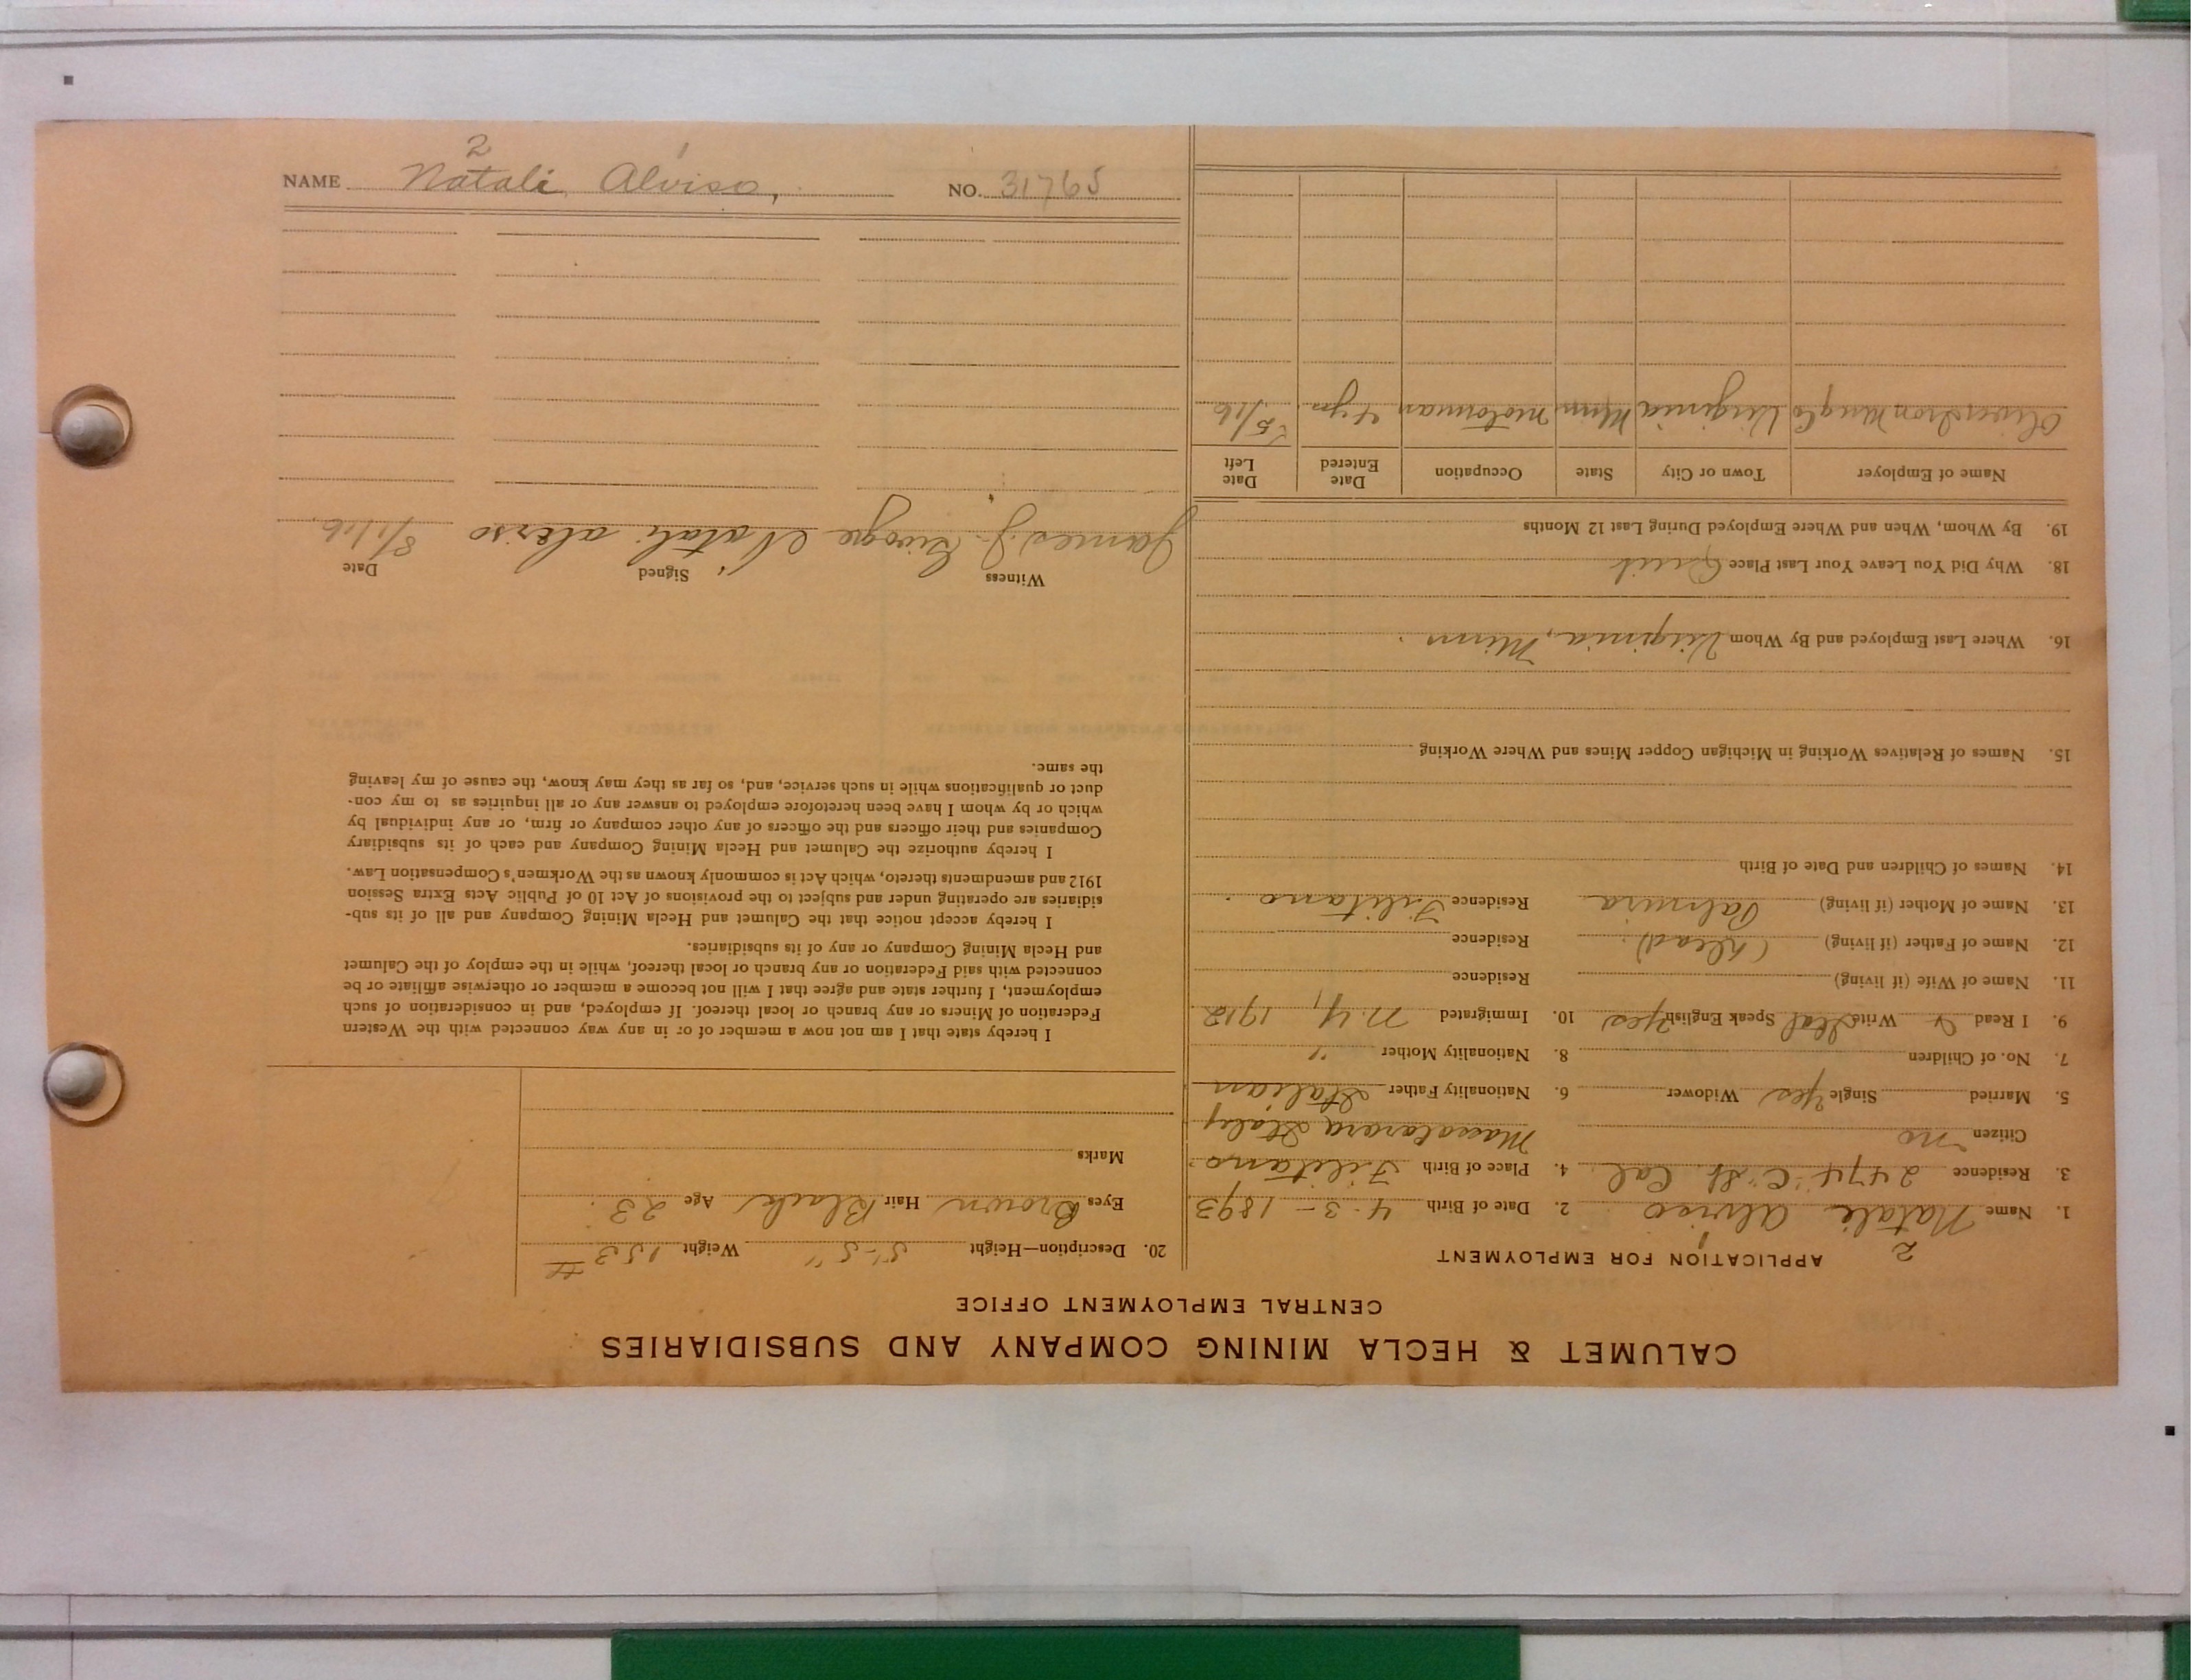 NAME Natali Alviso, NO. 31765
2 1
CALUMET & HECLA MINING COMPANY AND SUBSIDIARIES
CENTRAL EMPLOYMENT OFFICE
APPLICATION FOR EMPLOYMENT
2 1
1. Name Natali Alviso 2. Date of Birth 4-3-1893
3. Residence 2474 C. St. Cal. 4. Place of Birth Filitano
Citizen no Italy
5. Married Single Yes Widower 6. Nationality Father Italian
7. No. of Children 8. Nationality Mother "
9. I Read & Write Ital Speak English Yes 10. Immigrated N.Y. 1912
11. Name of Wife (if living) Residence
12. Name of Father (if living) (Dead) Residence
13. Name of Mother (if living) Palmira Residence Filitano
14. Names of Children and Date of Birth
15. Names of Relatives Working in Michigan Copper Mines and Where Working
16. Where Last Employed and By Whom Virginia, Minn.
18. Why Did You Leave Your Last Place Quit
19. By Whom, When and Where Employed During Last 12 Months
Name of Employer Town or City State Occupation Date Entered Date Left
Oliver Iron Mng Co Virginia Minn motorman 4 yrs. 5/16
20. Description—Height 5'-5" Weight 153 #
Eyes Brown Hair Black Age 23.
Marks
I hereby state that I am not now a member of or in any way connected with the Western
Federation of Miners or any branch or local thereof. If employed, and in consideration of such
employment, I further state and agree that I will not become a member or otherwise affiliate or be
connected with said Federation or any branch or local thereof, while in the employ of the Calumet
and Hecla Mining Company or any of its subsidiaries.
I hereby accept notice that the Calumet and Hecla Mining Company and all of its sub-
sidiaries are operating under and subject to the provisions of Act 10 of Public Acts Extra Session
1912 and amendments thereto, which Act is commonly known as the Workmen's Compensation Law.
I hereby authorize the Calumet and Hecla Mining Company and each of its subsidiary
Companies and their officers and the officers of any other company or firm, or any individual by
which or by whom I have been heretofore employed to answer any or all inquiries as to my con-
duct or qualifications while in such service, and, so far as they may know, the cause of my leaving
the same.
Witness Signed Date
James J. Natali alviso 8/1/16